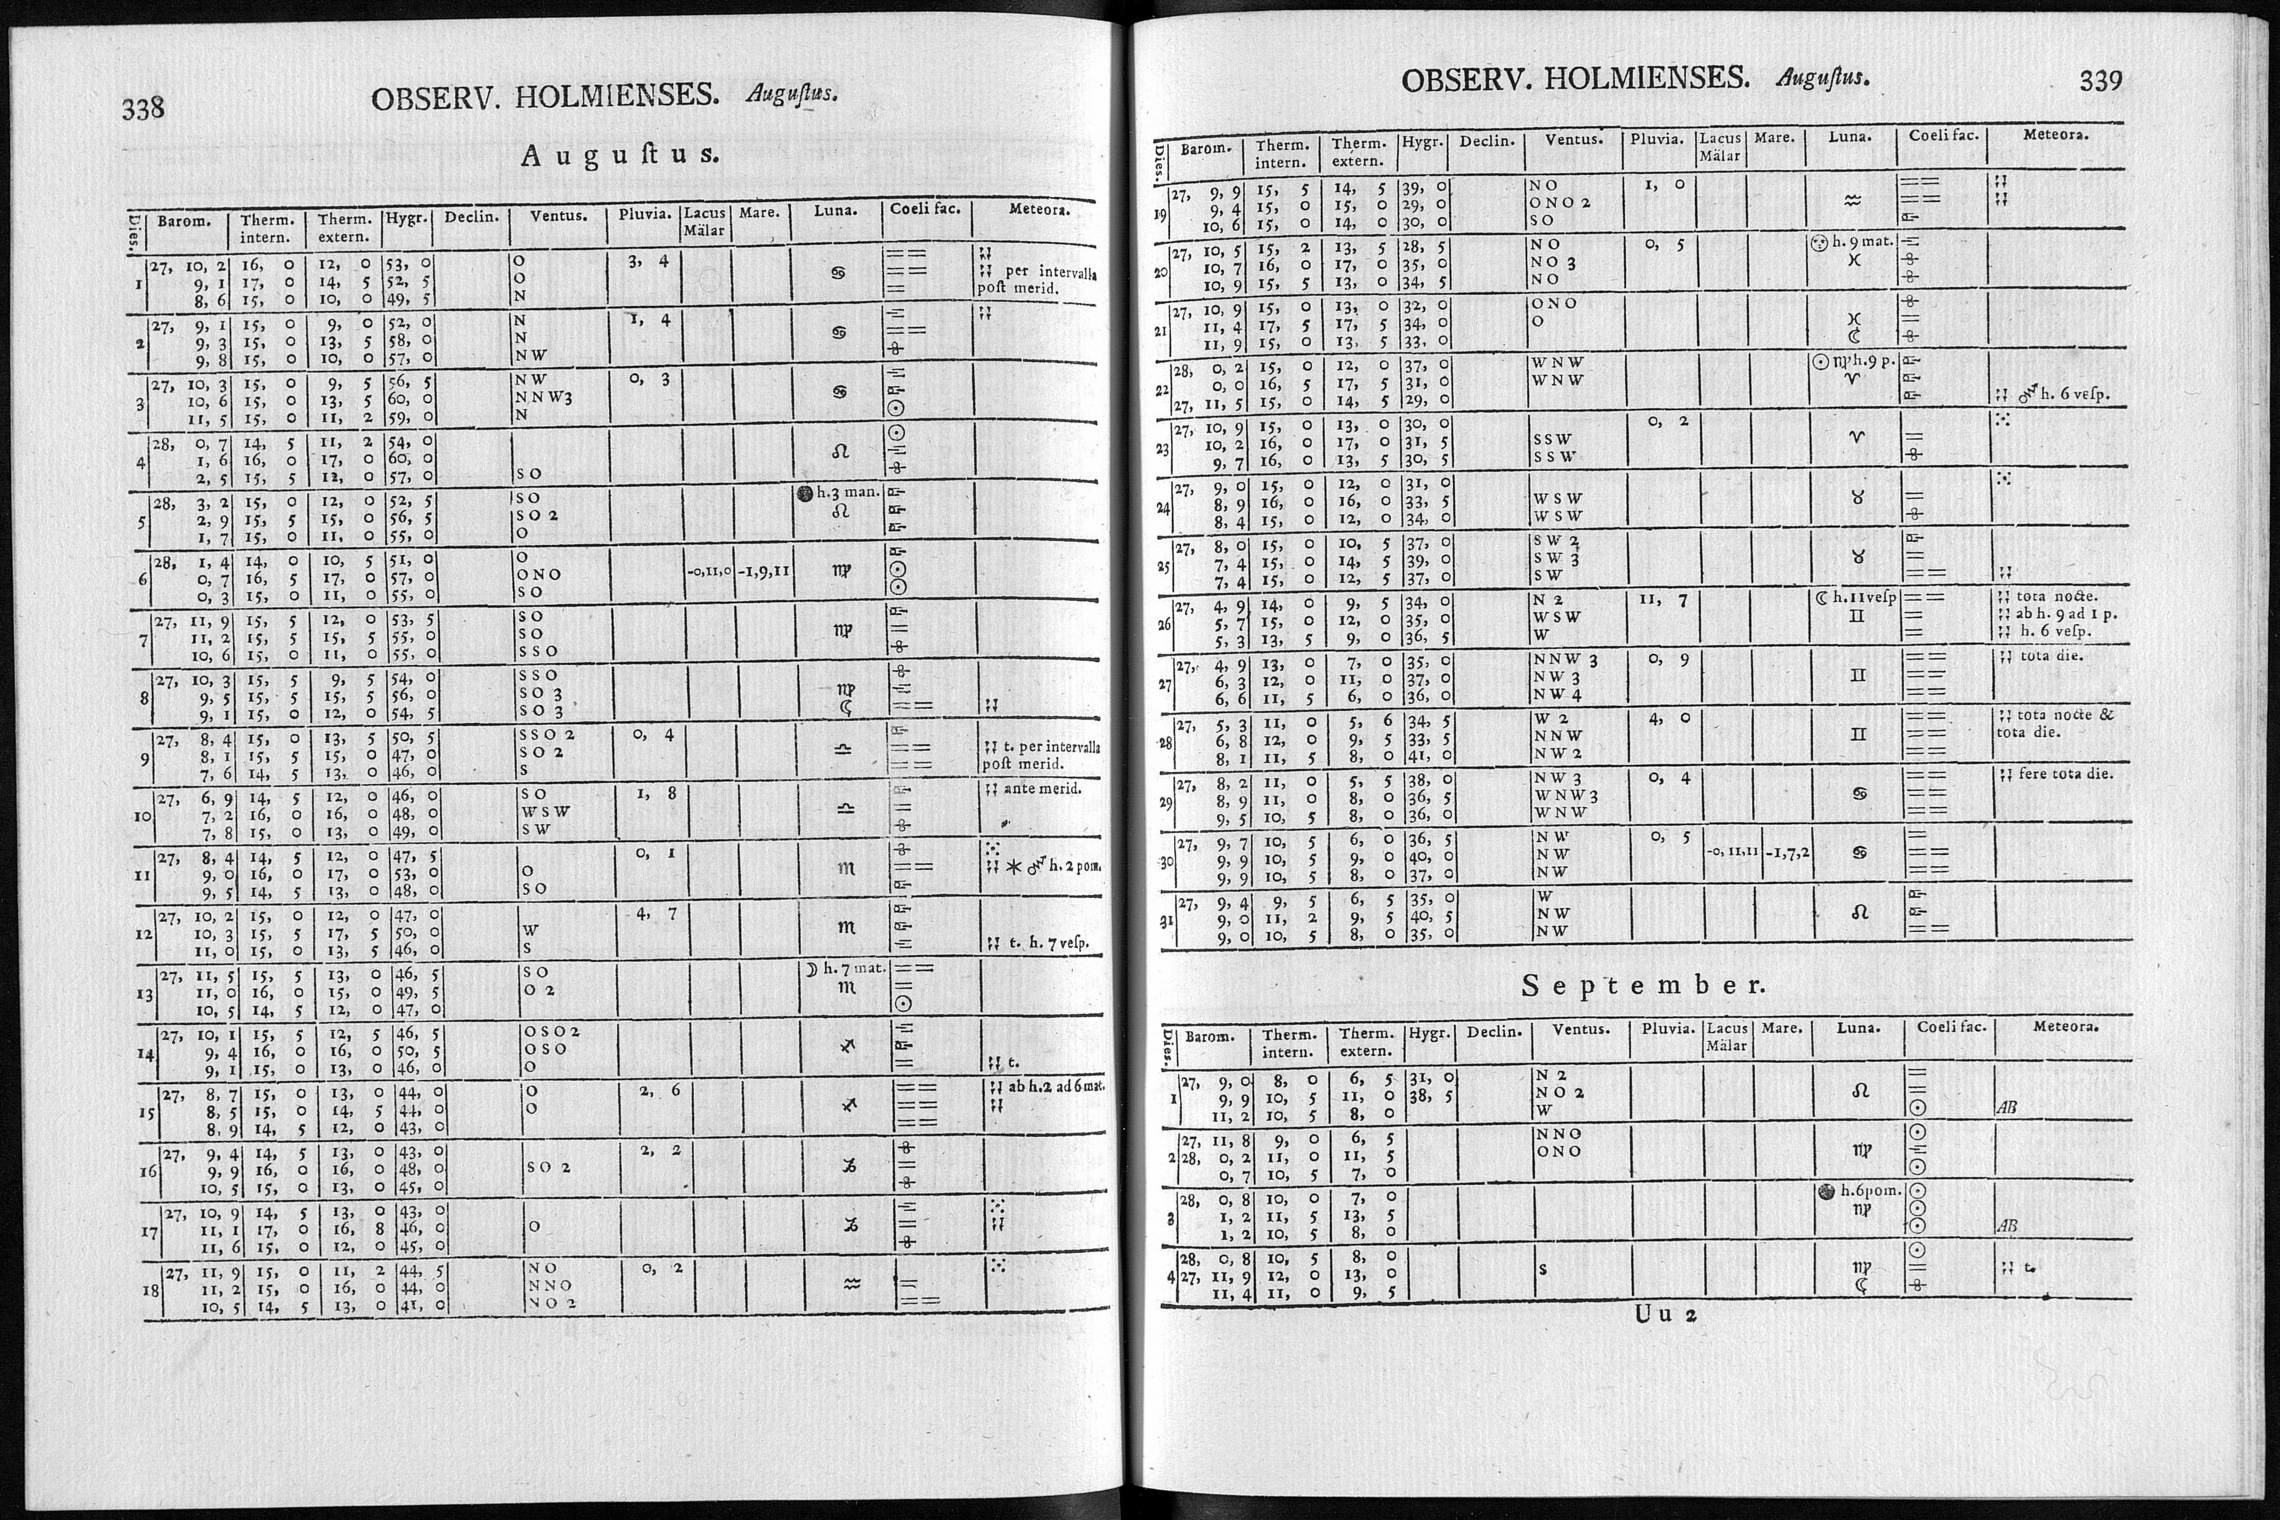 338
OBSERV. HOLMIENSES. Auguſtus.
Auguſtus.
Dies. Barom. Therm. intern. Therm. extern. Hygr. Declin. Ventus. Pluvia. Lacus Mälar Mare. Luna. Coeli fac. Meteora.
27, 10, 2 16, 0 12, 0 53, 0 O 3, 4 == ⁏⁏
1 9, 1 17, 0 14, 5 52, 5 O ♋ == ⁏⁏ per intervalla
8, 6 15, 0 10, 0 49, 5 N = poſt merid.
27, 9, 1 15, 0 9, 0 52, 0 N 1, 4 ⁏⁏
2 9, 3 15, 0 13, 5 58, 0 N ♋ ==
9, 8 15, 0 10, 0 57, 0 NW
27, 10, 3 15, 0 9, 5 56, 5 NW 0, 3
3 10, 6 15, 0 13, 5 60, 0 NNW3 ♋
11, 5 15, 0 11, 2 59, 0 N ☉
28, 0, 7 14, 5 11, 2 54, 0 ☉
4 1, 6 16, 0 17, 0 60, 0 ♌
2, 5 15, 5 12, 0 57, 0 SO
28, 3, 2 15, 0 12, 0 52, 5 SO ● h. 3 man.
5 2, 9 15, 5 15, 0 56, 5 SO 2 ♌
1, 7 15, 0 11, 0 55, 0 O
28, 1, 4 14, 0 10, 5 51, 0 O
6 0, 7 16, 5 17, 0 57, 0 ONO -0,11,0 -1,9,11 ♍ ☉
0, 3 15, 0 11, 0 55, 0 SO ☉
27, 11, 9 15, 5 12, 0 53, 5 SO
7 11, 2 15, 5 15, 5 55, 0 SO ♍ =
10, 6 15, 0 11, 0 55, 0 SSO
27, 10, 3 15, 5 9, 5 54, 0 SSO
8 9, 5 15, 5 15, 5 56, 0 SO 3 ♍
9, 1 15, 0 12, 0 54, 5 SO 3 ☾ == ⁏⁏
27, 8, 4 15, 0 13, 5 50, 5 SSO 2 0, 4
9 8, 1 15, 5 15, 0 47, 0 SO 2 ♎ == ⁏⁏ t. per intervalla
7, 6 14, 5 13, 0 46, 0 S == poſt merid.
27, 6, 9 14, 5 12, 0 46, 0 SO 1, 8 ⁏⁏ ante merid.
10 7, 2 16, 0 16, 0 48, 0 WSW ♎ =
7, 8 15, 0 13, 0 49, 0 SW
27, 8, 4 14, 5 12, 0 47, 5 0, 1 ⁙
11 9, 0 16, 0 17, 0 53, 0 O ♏ == ⁏⁏ h. 2 pom.
9, 5 14, 5 13, 0 48, 0 SO
27, 10, 2 15, 0 12, 0 47, 0 4, 7
12 10, 3 15, 5 17, 5 50, 0 W ♏
11, 0 15, 0 13, 5 46, 0 S ⁏⁏ t. h. 7 veſp.
27, 11, 5 15, 5 13, 0 46, 5 SO ☽ h. 7 mat. ==
13 11, 0 16, 0 15, 0 49, 5 O 2 ♏ =
10, 5 14, 5 12, 0 47, 0 ☉
27, 10, 1 15, 5 12, 5 46, 5 OSO2
14 9, 4 16, 0 16, 0 50, 5 OSO ♐
9, 1 15, 0 13, 0 46, 0 O = ⁏⁏ t.
27, 8, 7 15, 0 13, 0 44, 0 O 2, 6 == ⁏⁏ ab h. 2 ad 6 mat.
15 8, 5 15, 0 14, 5 44, 0 O ♐ == ⁏⁏
8, 9 14, 5 12, 0 43, 0 ==
27, 9, 4 14, 5 13, 0 43, 0 2, 2
16 9, 9 16, 0 16, 0 48, 0 SO 2 ♑ =
10, 5 15, 0 13, 0 45, 0
27, 10, 9 14, 5 13, 0 43, 0 ⁙
17 11, 1 17, 0 16, 8 46, 0 O ♑ = ⁏⁏
11, 6 15, 0 12, 0 45, 0
27, 11, 9 15, 0 11, 2 44, 5 NO 0, 2 ⁙
18 11, 2 15, 0 16, 0 44, 0 NNO ♒ =
10, 5 14, 5 13, 0 41, 0 NO 2 ==
OBSERV. HOLMIENSES. Auguſtus.
339
Dies. Barom. Therm. intern. Therm. extern. Hygr. Declin. Ventus. Pluvia. Lacus Mälar Mare. Luna. Coeli fac. Meteora.
27, 9, 9 15, 5 14, 5 39, 0 NO 1, 0 == ⁏⁏
19 9, 4 15, 0 15, 0 29, 0 ONO 2 ♒ == ⁏⁏
10, 6 15, 0 14, 0 30, 0 SO
27, 10, 5 15, 2 13, 5 28, 5 NO 0, 5 h. 9 mat.
20 10, 7 16, 0 17, 0 35, 0 NO 3 ♓
10, 9 15, 5 13, 0 34, 5 NO
27, 10, 9 15, 0 13, 0 32, 0 ONO
21 11, 4 17, 5 17, 5 34, 0 O ♓ =
11, 9 15, 0 13, 5 33, 0 ☾
28, 0, 2 15, 0 12, 0 37, 0 WNW ☉ ♍ h. 9 p.
22 0, 0 16, 5 17, 5 31, 0 WNW ♈
27, 11, 5 15, 0 14, 5 29, 0 ⁏⁏ h. 6 veſp.
27, 10, 9 15, 0 13, 0 30, 0 0, 2 ⁙
23 10, 2 16, 0 17, 0 31, 5 SSW ♈ =
9, 7 16, 0 13, 5 30, 5 SSW
27, 9, 0 15, 0 12, 0 31, 0 ⁙
24 8, 9 16, 0 16, 0 33, 5 WSW ♉ =
8, 4 15, 0 12, 0 34, 0 WSW
27, 8, 0 15, 0 10, 5 37, 0 SW 2
25 7, 4 15, 0 14, 5 39, 0 SW 3 ♉ =
7, 4 15, 0 12, 5 37, 0 SW == ⁏⁏
27, 4, 9 14, 0 9, 5 34, 0 N 2 11, 7 ☾ h. 11 veſp == ⁏⁏ tota nocte.
26 5, 7 15, 0 12, 0 35, 0 WSW ♊ = ⁏⁏ ab h. 9 ad 1 p.
5, 3 13, 5 9, 0 36, 5 W = ⁏⁏ h. 6 veſp.
27, 4, 9 13, 0 7, 0 35, 0 NNW 3 0, 9 == ⁏⁏ tota die.
27 6, 3 12, 0 11, 0 37, 0 NW 3 ♊ ==
6, 6 11, 5 6, 0 36, 0 NW 4 ==
27, 5, 3 11, 0 5, 6 34, 5 W 2 4, 0 == ⁏⁏ tota nocte &
28 6, 8 12, 0 9, 5 33, 5 NNW ♊ == tota die.
8, 1 11, 5 8, 0 41, 0 NW 2 ==
27, 8, 2 11, 0 5, 5 38, 0 NW 3 0, 4 == ⁏⁏ fere tota die.
29 8, 9 11, 0 8, 0 36, 5 WNW3 ♋ ==
9, 5 10, 5 8, 0 36, 0 WNW ==
27, 9, 7 10, 5 6, 0 36, 5 NW 0, 5 =
30 9, 9 10, 5 9, 0 40, 0 NW -0, 11,11 -1,7,2 ♋ ==
9, 9 10, 5 8, 0 37, 0 NW ==
27, 9, 4 9, 5 6, 5 35, 0 W
31 9, 0 11, 2 9, 5 40, 5 NW ♌
9, 0 10, 5 8, 0 35, 0 NW ==
September.
Dies. Barom. Therm. intern. Therm. extern. Hygr. Declin. Ventus. Pluvia. Lacus Mälar Mare. Luna. Coeli fac. Meteora.
27, 9, 0 8, 0 6, 5 31, 0 N 2 =
1 9, 9 10, 5 11, 0 38, 5 NO 2 ♌ =
11, 2 10, 5 8, 0 W ☉ AB
27, 11, 8 9, 0 6, 5 NNO ☉
2 28, 0, 2 11, 0 11, 5 ONO ♍
0, 7 10, 5 7, 0 ☉
28, 0, 8 10, 0 7, 0 ● h. 6 pom. ☉
3 1, 2 11, 5 13, 5 ♍ ☉
1, 2 10, 5 8, 0 ☉ AB
28, 0, 8 10, 5 8, 0 ☉
4 27, 11, 9 12, 0 13, 0 S ♍ = ⁏⁏ t.
11, 4 11, 0 9, 5 ☾
Uu 2